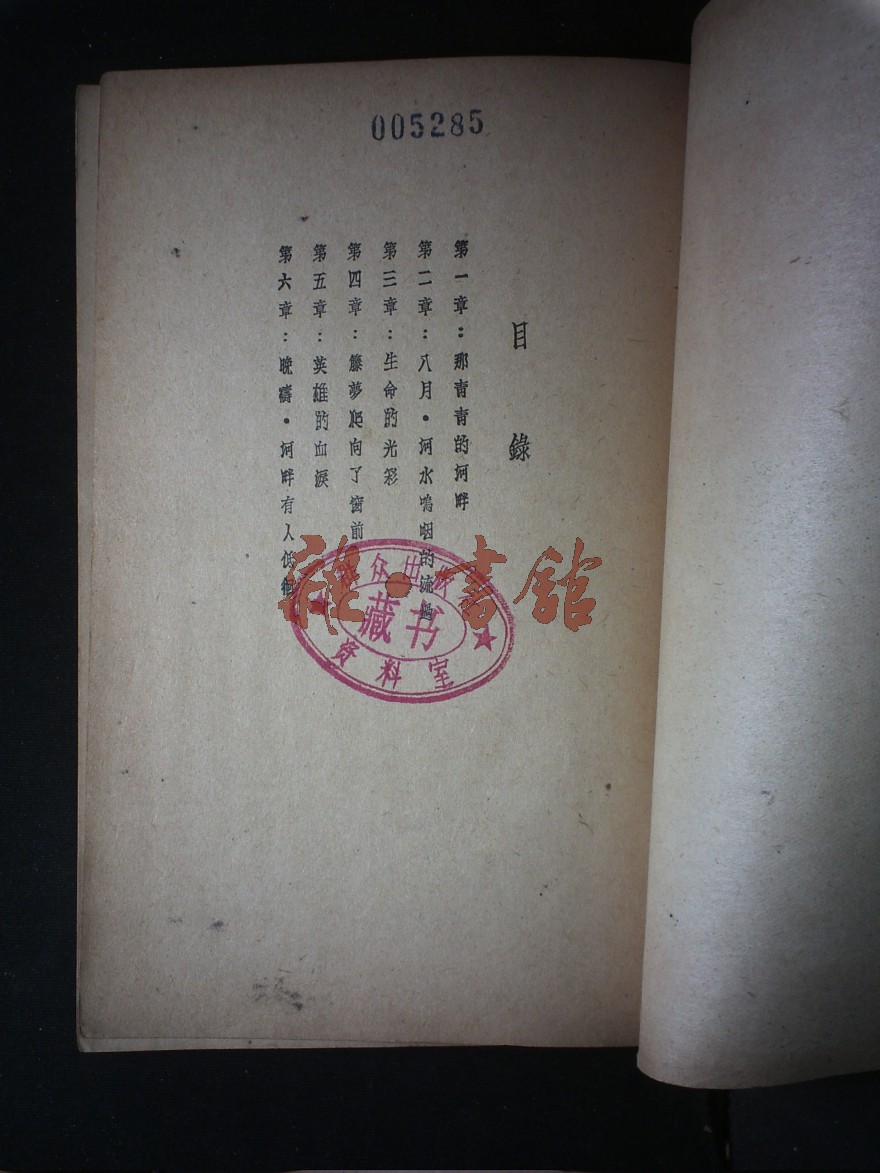 005285
目錄
第一章：那青青的河畔
第二章：八月・河水嗚咽的流過
第三章：生命的光彩
第四章：籐夢爬向了窗前
第五章：英雄的血淚
第六章：晚濤・河畔有人低徊
雜・書館
群众出版社
藏书
资料室